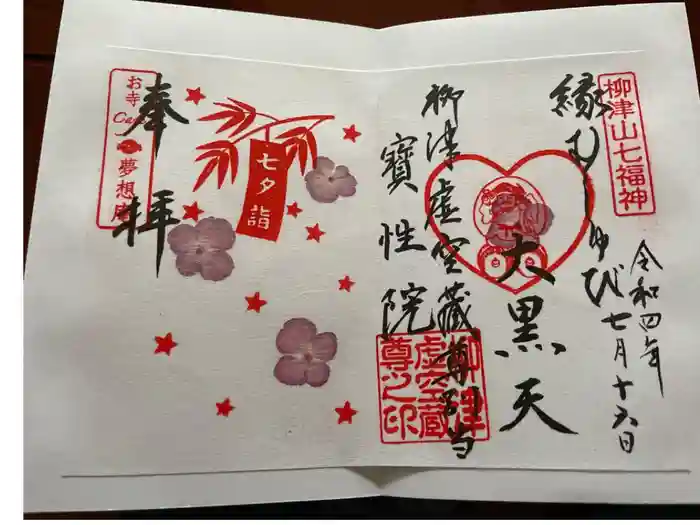 柳津山七福神
令和四年
七月十六日
縁むすび
大黒天
柳津虚空蔵尊別当
寶性院
柳津
虚空蔵
尊之印
七夕詣
奉拝
お寺Cafe夢想庵